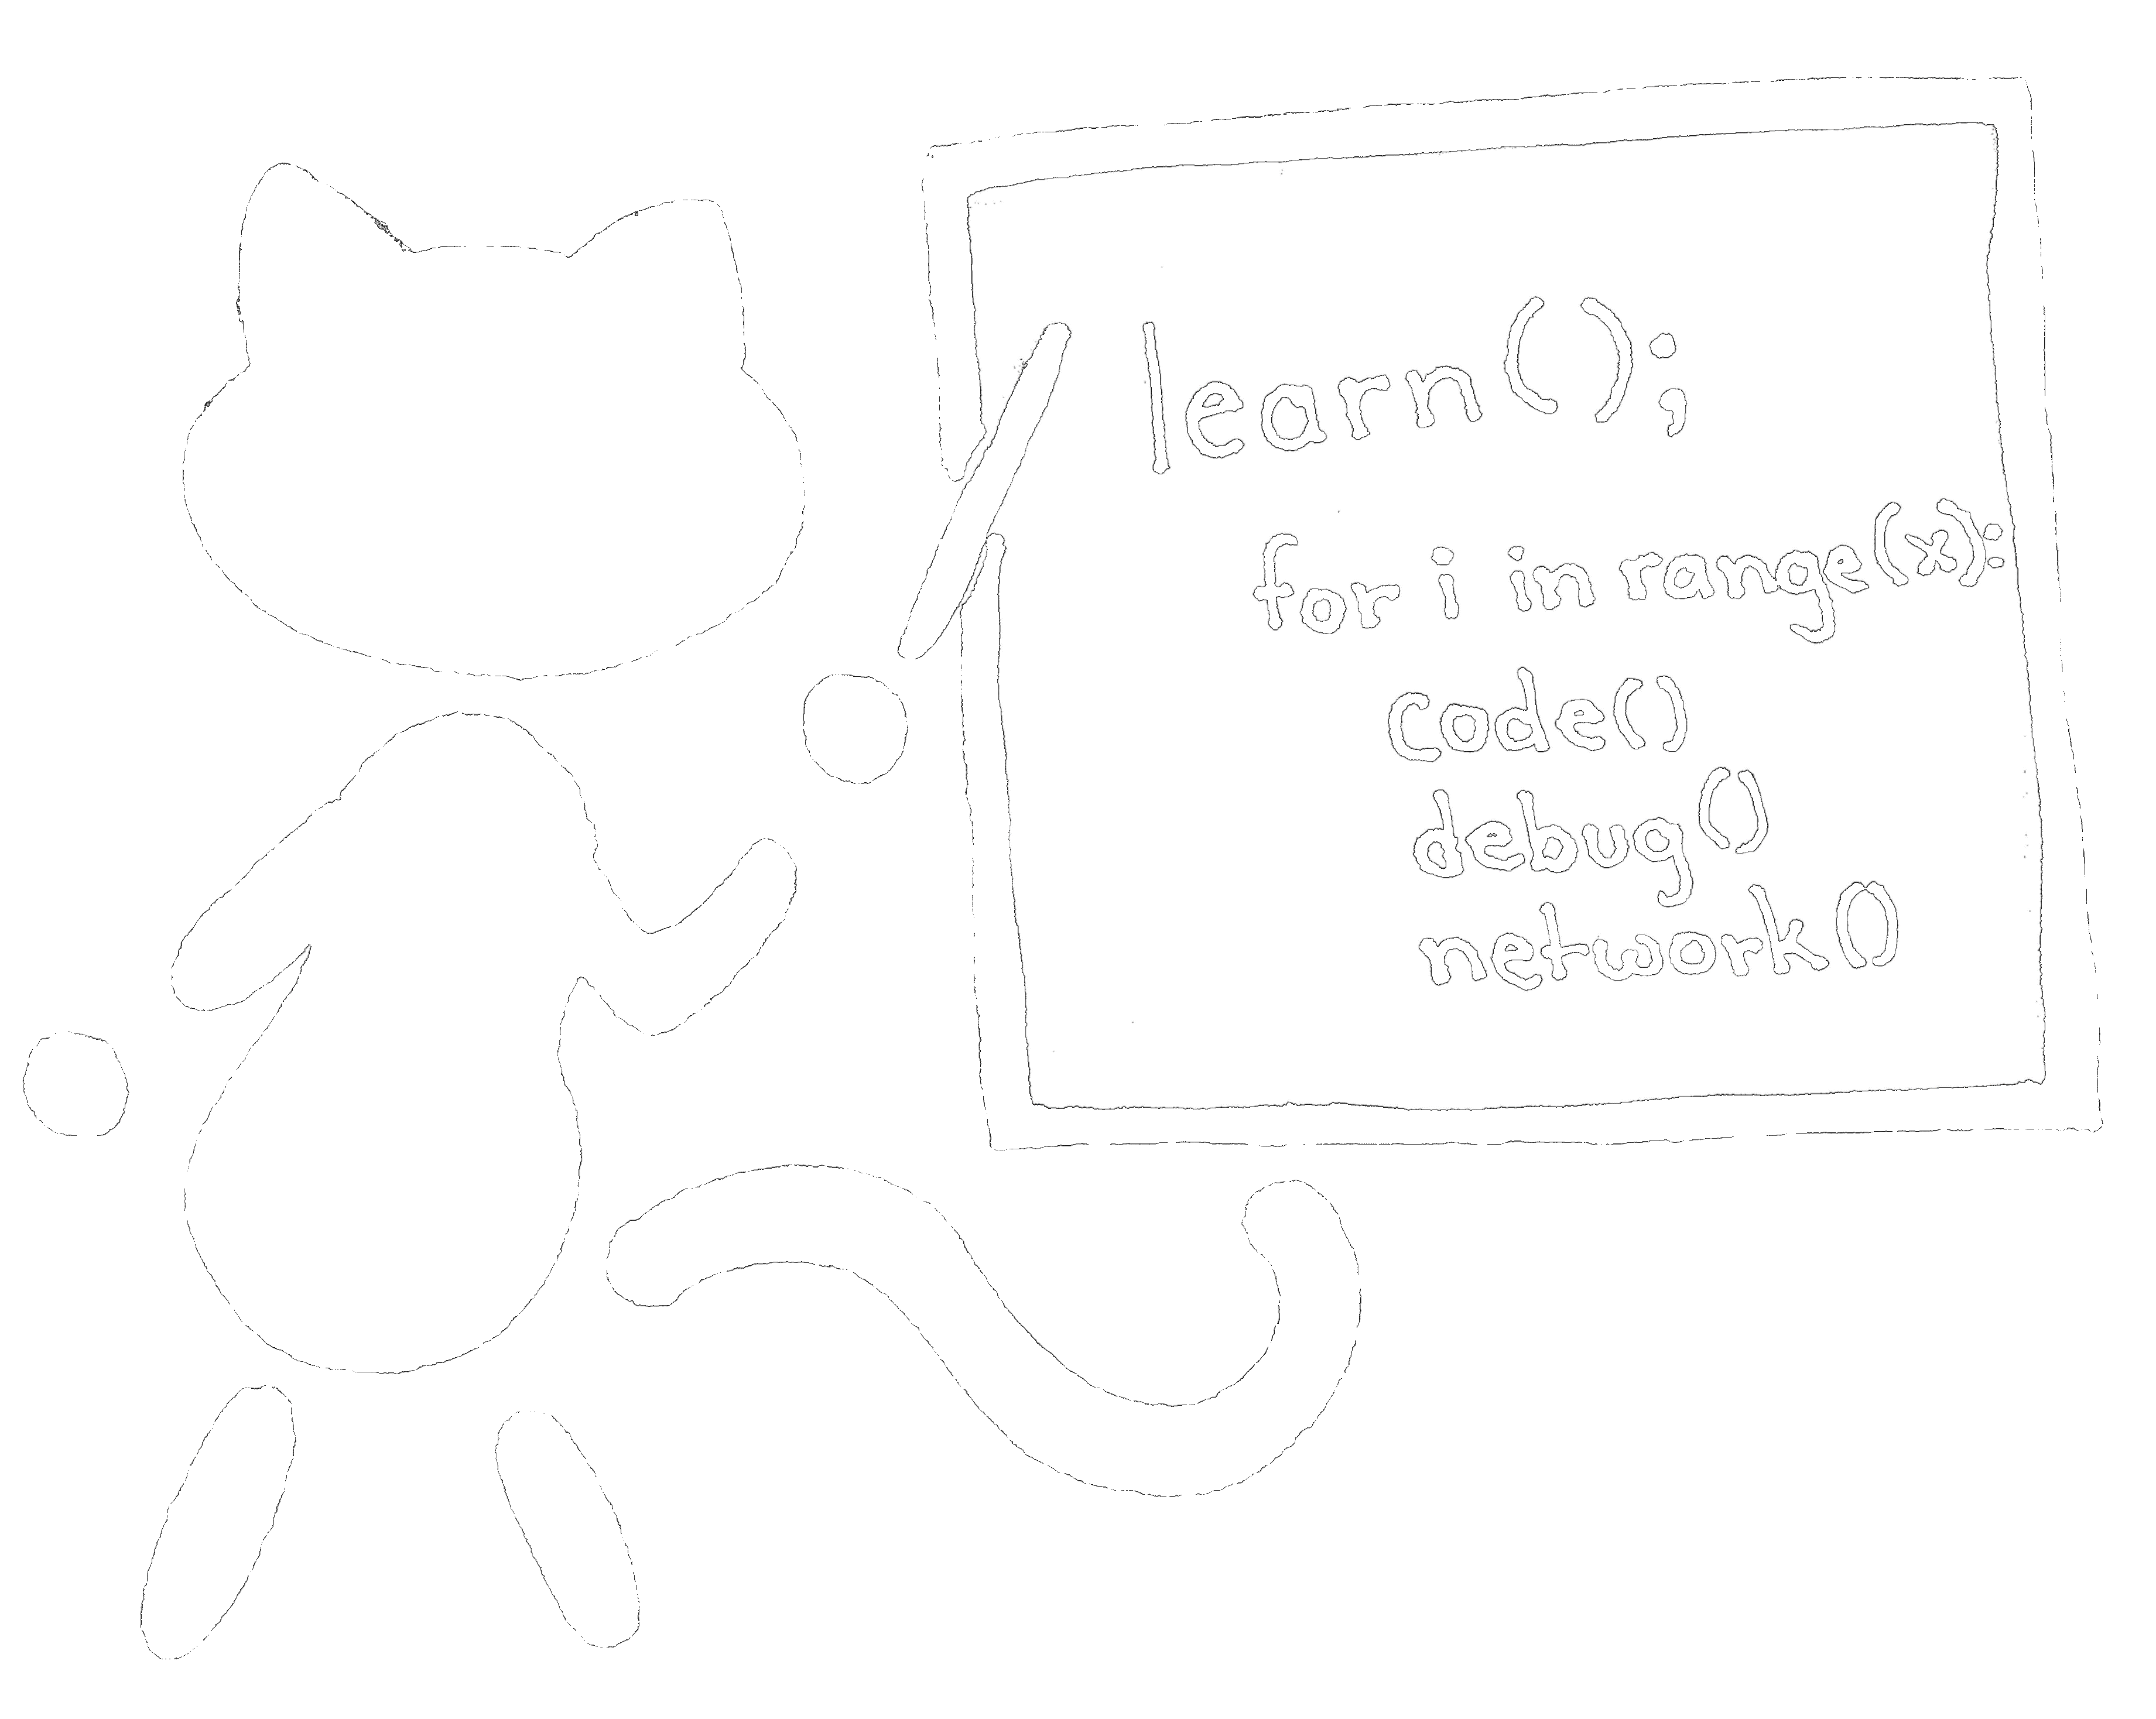 learn();
for i in range(x):
code()
debug()
network()